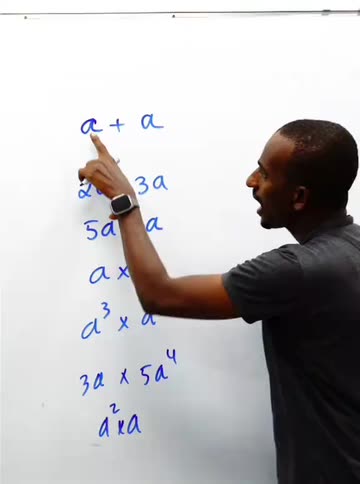 a + a
2 3a
5a a
a ×
a³ × a
3a × 5a⁴
a² × a